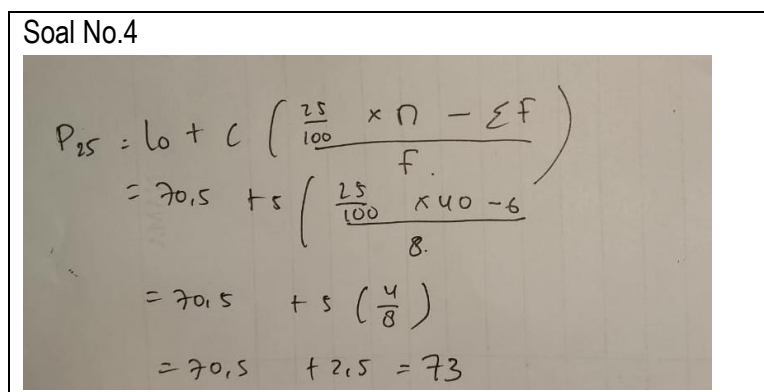 Soal No.4
P₂₅ = lo + c ( 25/100 × n - Σf / f. )
= 70,5 + 5 ( 25/100 × 40 - 6 / 8.
= 70,5 + 5 ( 4/8 )
= 70,5 + 2,5 = 73